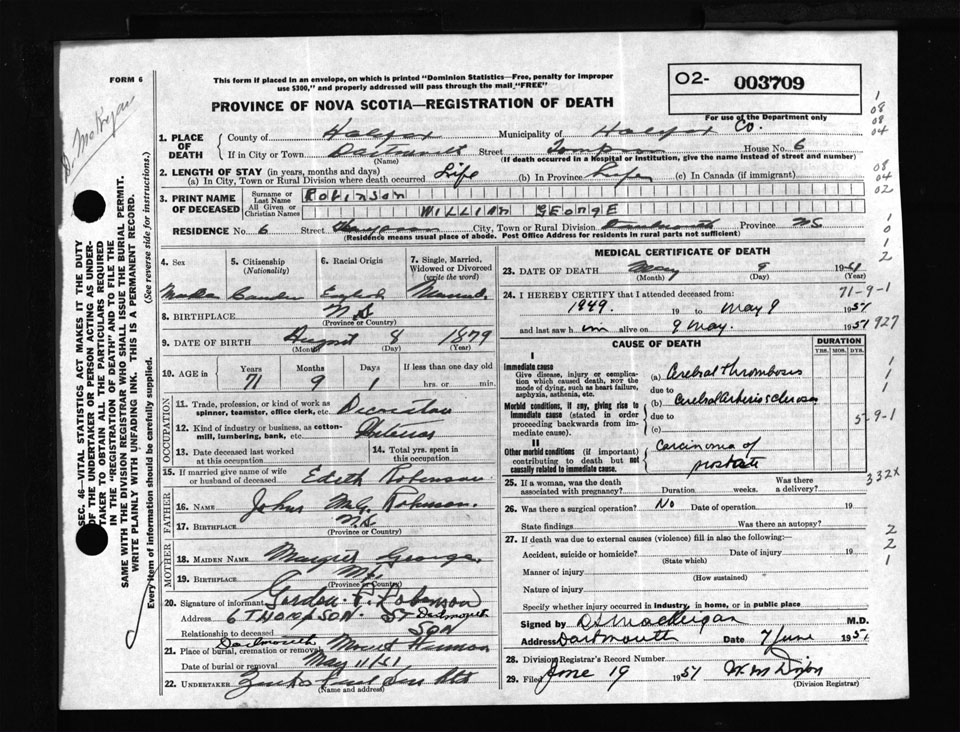 FORM 6
This form if placed in an envelope, on which is printed "Dominion Statistics—Free, penalty for improper
use $300," and properly addressed will pass through the mail "FREE"
02- 003709
For use of the Department only
PROVINCE OF NOVA SCOTIA—REGISTRATION OF DEATH
1. PLACE OF DEATH
County of Halifax Municipality of Halifax Co.
If in City or Town Dartmouth Street House No. 6
(Name) (If death occurred in a Hospital or Institution, give the name instead of street and number)
2. LENGTH OF STAY (in years, months and days)
(a) In City, Town or Rural Division where death occurred Life (b) In Province Life (c) In Canada (if immigrant)
3. PRINT NAME OF DECEASED
Surname or Last Name ROBINSON
All Given or Christian Names WILLIAM GEORGE
RESIDENCE No. 6 Street Thompson City, Town or Rural Division Dartmouth Province N.S
(Residence means usual place of abode. Post Office Address for residents in rural parts not sufficient)
4. Sex
5. Citizenship (Nationality)
6. Racial Origin
7. Single, Married, Widowed or Divorced (write the word)
Male English Married
8. BIRTHPLACE N.S
(Province or Country)
9. DATE OF BIRTH August 8 1879
(Month) (Day) (Year)
10. AGE in Years Months Days If less than one day old
71 9 1 hrs. or min.
OCCUPATION
11. Trade, profession, or kind of work as spinner, teamster, office clerk, etc.
12. Kind of industry or business, as cotton-mill, lumbering, bank, etc.
13. Date deceased last worked at this occupation
14. Total yrs. spent in this occupation
15. If married give name of wife or husband of deceased Edith Robinson
FATHER
16. NAME John Robinson
17. BIRTHPLACE N.S
(Province or Country)
MOTHER
18. MAIDEN NAME Margret George
19. BIRTHPLACE N.S
(Province or Country)
20. Signature of informant Gordon F. Robinson
Address 6 THOMPSON ST Dartmouth
Relationship to deceased SON
21. Place of burial, cremation or removal Dartmouth Mount Hermon
Date of burial or removal May 11/51
22. UNDERTAKER
(Name and address)
MEDICAL CERTIFICATE OF DEATH
23. DATE OF DEATH May 9 1951
(Month) (Day) (Year)
71-9-1
24. I HEREBY CERTIFY that I attended deceased from:
1949. 19 to May 9 1951
and last saw him alive on 9 May. 1951
927
CAUSE OF DEATH
DURATION
YRS. MOS. DYS.
I
Immediate cause
Give disease, injury or complication which caused death, NOT the mode of dying, such as heart failure, asphyxia, asthenia, etc.
(a) Cerebral thrombosis
due to
(b) Cerebral arteriosclerosis
Morbid conditions, if any, giving rise to immediate cause (stated in order proceeding backwards from immediate cause).
due to
(c)
II
Other morbid conditions (if important) contributing to death but not causally related to immediate cause.
Carcinoma of
prostate
332X
25. If a woman, was the death associated with pregnancy? Duration weeks. Was there a delivery?
26. Was there a surgical operation? No Date of operation 19
State findings Was there an autopsy?
27. If death was due to external causes (violence) fill in also the following:—
Accident, suicide or homicide? Date of injury 19
(State which)
Manner of injury
(How sustained)
Nature of injury
Specify whether injury occurred in industry, in home, or in public place
Signed by M.D.
Address Dartmouth Date 7 June 1951
28. Division Registrar's Record Number
29. Filed June 19 1951
(Division Registrar)
SEC. 46—VITAL STATISTICS ACT MAKES IT THE DUTY
OF THE UNDERTAKER OR PERSON ACTING AS UNDER-
TAKER TO OBTAIN ALL THE PARTICULARS REQUIRED
IN THE "REGISTRATION OF DEATH" AND TO FILE THE
SAME WITH THE DIVISION REGISTRAR WHO SHALL ISSUE THE BURIAL PERMIT.
WRITE PLAINLY WITH UNFADING INK. THIS IS A PERMANENT RECORD.
Every item of information should be carefully supplied. (See reverse side for instructions.)